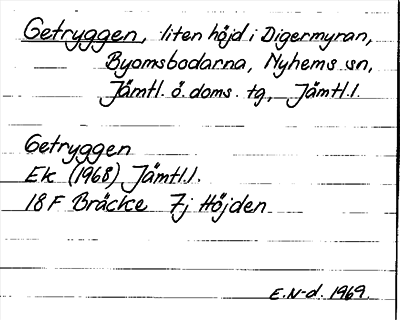 Getryggen, liten höjd i Digermyran,
Byomsbodarna, Nyhems sn,
Jämtl. ö. doms. tg, Jämtl.l.
Getryggen
Ek (1968) Jämtl.l.
18 F Bräcke 7j Höjden
E.N-d. 1969.